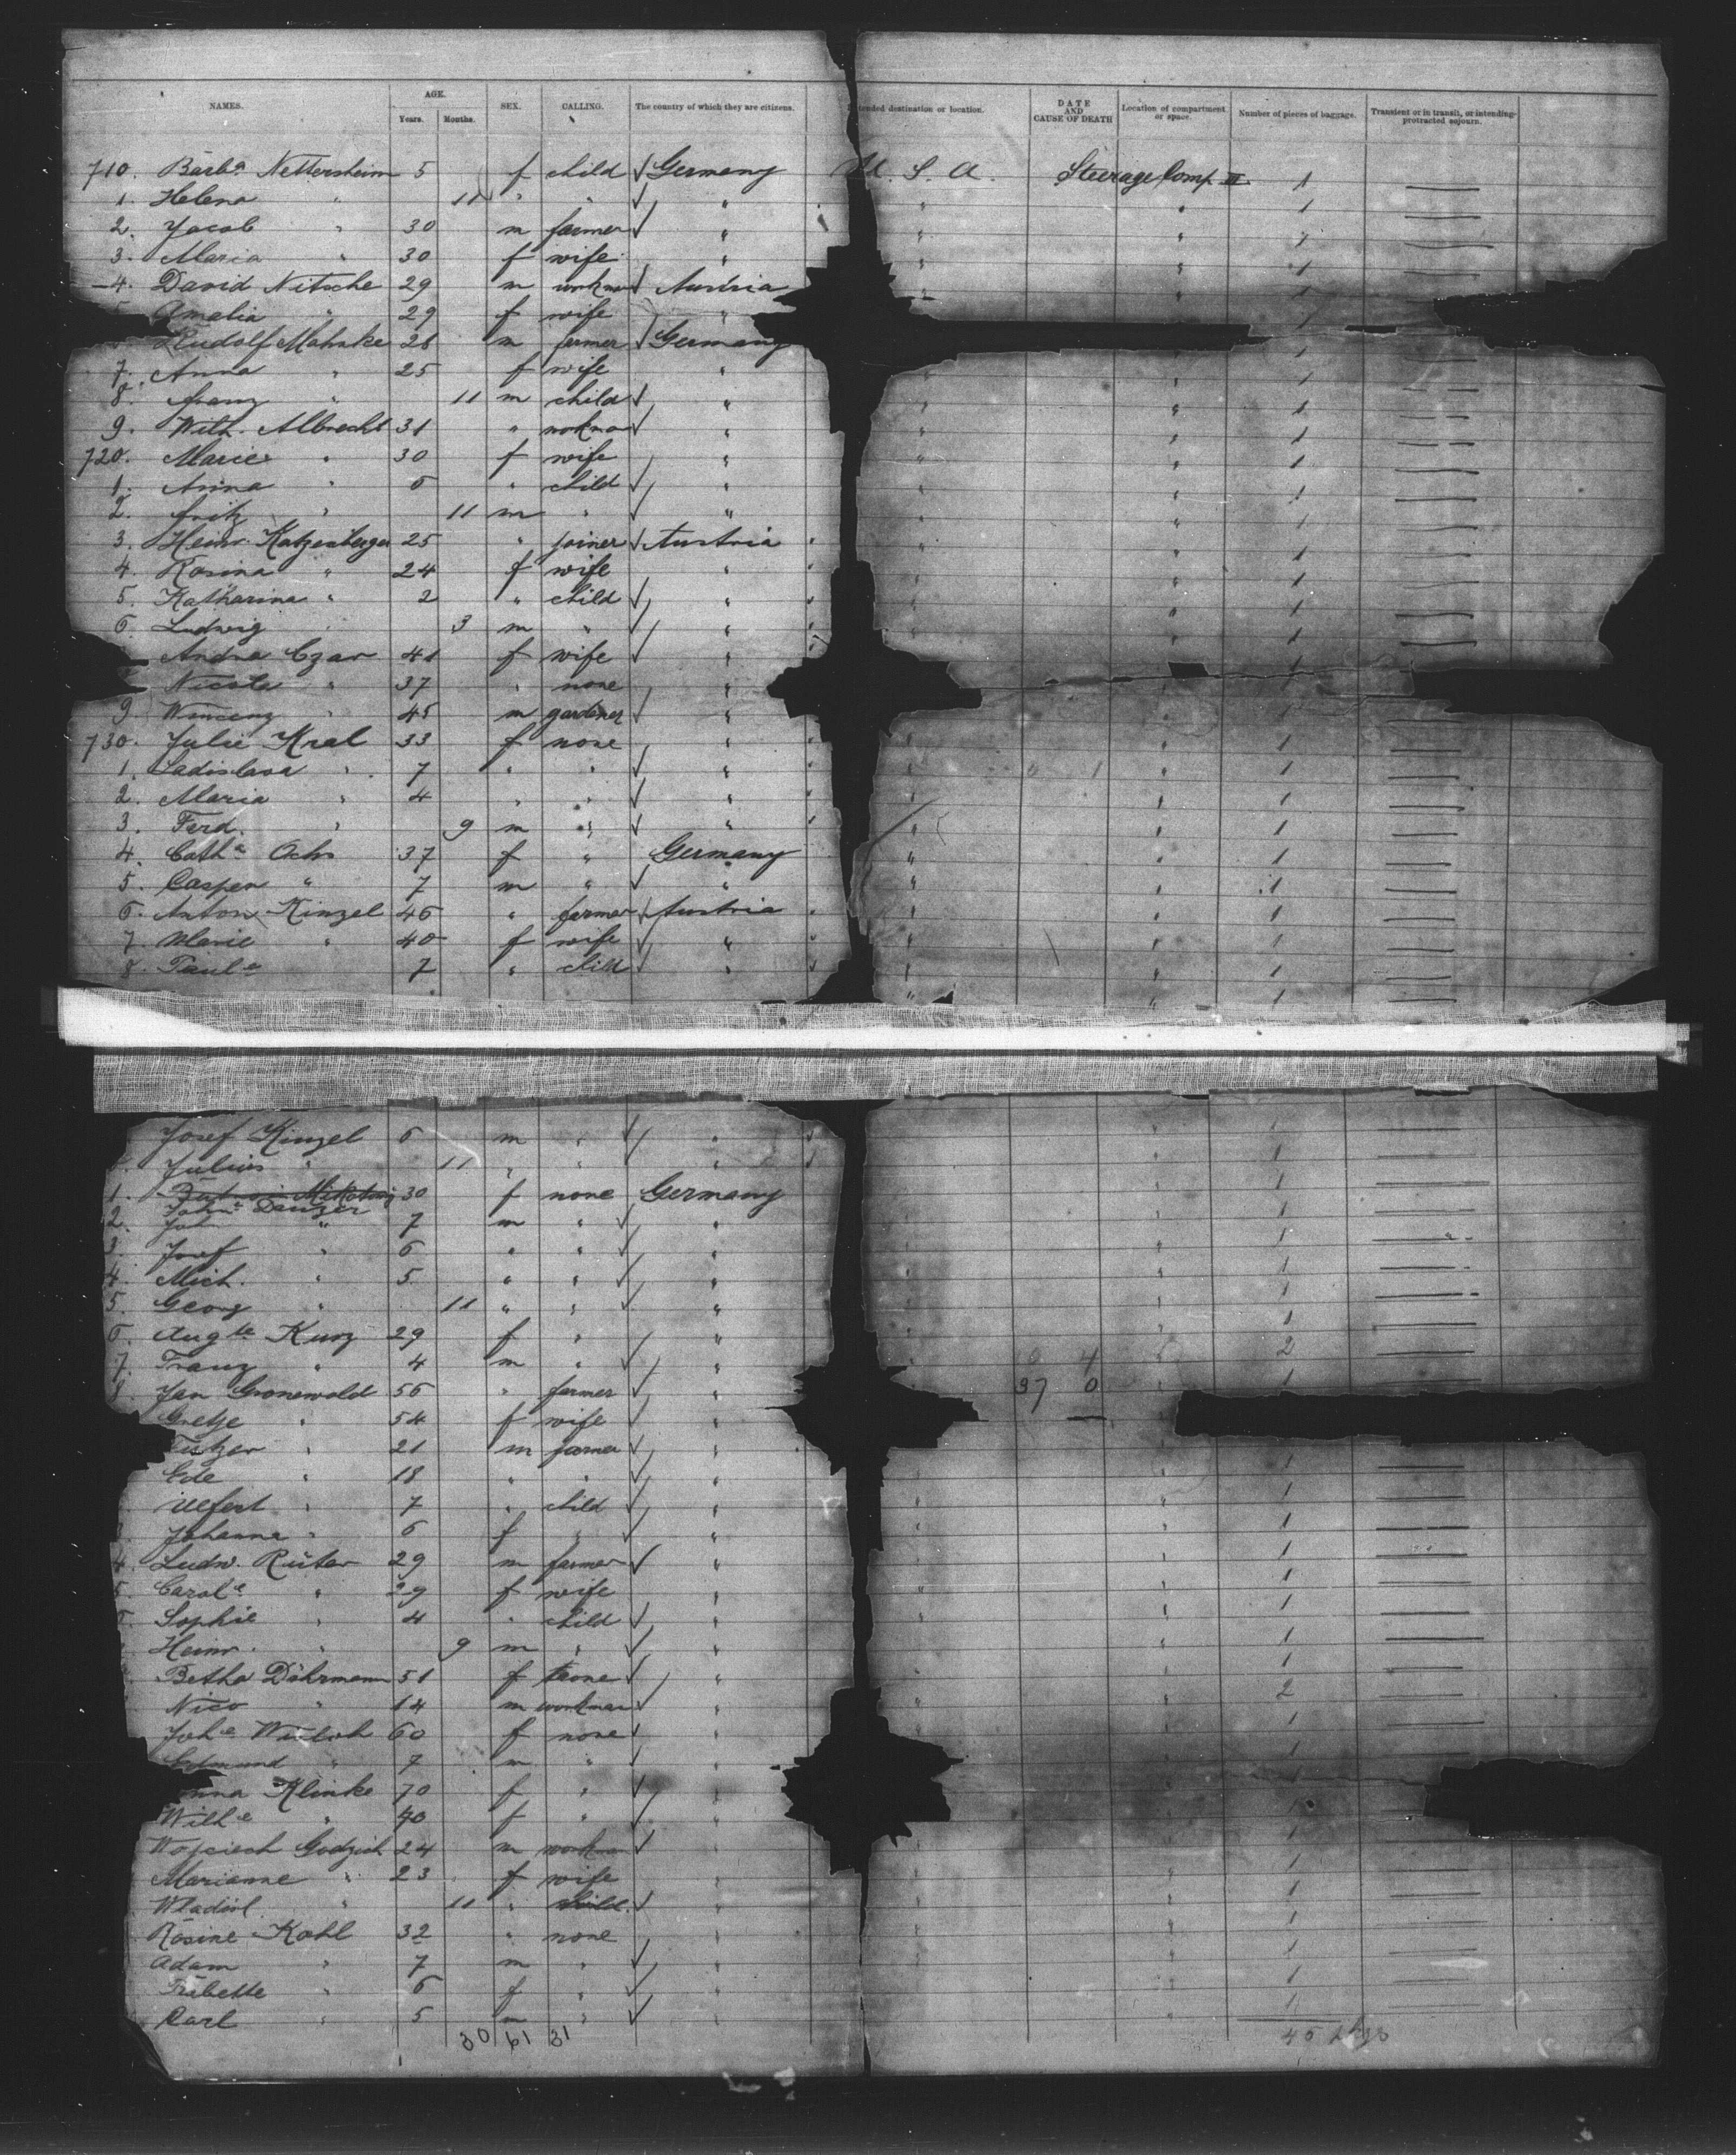 NAMES. AGE. Years. Months. SEX. CALLING. The country of which they are citizens. tended destination or location. DATE AND CAUSE OF DEATH Location of compartment or space. Number of pieces of baggage. Transient or in transit, or intending protracted sojourn.
710. Barba Nettersheim 5 f child √ Germany U. S. A. Steerage Comp. III 1 —
1. Helena " 11 " " √ " " " 1 —
2. Jacob " 30 m farmer √ " " " 1 —
3. Maria " 30 f wife " " " 1 —
4. David Nitsche 29 m workman √ Austria " " 1
5. Amalia " 29 f wife "
Rudolf Mahnke 28 m farmer √ Germany 1 —
7. Anna " 25 f wife " " " 1 —
8. Franz " 11 m child √ " " " 1 —
9. Wilh. Albrecht 31 " workman √ " " " 1 —
720. Marie " 30 f wife " " " 1 —
1. Anna " 5 " child √ " " " 1 —
2. Fritz " 11 m " √ " " " 1 —
3. Heinr. Katzenberger 25 " joiner √ Austria " " 1 —
4. Rosina " 24 f wife " " " 1 —
5. Katharina " 2 " child √ " " " 1 —
6. Ludwig 3 m " √ " " 1 —
Czar 41 f wife √ "
" 37 " none "
9 " 45 m gardener √ "
730. Julie Kral 33 f none " " " 1 —
1. Ladislava " 7 " " √ " " " 1 —
2. Maria " 4 " " √ " " " 1 —
3. Ferd. " 9 m " √ " " " 1 —
4. Catha Ochs 37 f " Germany " " 1 —
5. Casper " 7 m " √ " " " 1 —
6. Anton Kinzel 46 " farmer √ Austria " " 1 —
7. Marie " 40 f wife √ " " " 1 —
8. Paula 7 " child √ " " " 1 —
Josef Kinzel 6 m " √ " " 1 —
Julius " 11 " " " " 1 —
1. Danzer 30 f none Germany " 1 —
2. Joh " 7 m " √ " " 1 —
3. Josef " 6 " " √ " " 1 —
4. Mich. " 5 " " √ " " 1 —
5. Georg " 11 " " √ " " 1 —
6. Augte Kurz 29 f " " " 2 —
7. Franz " 4 m " √ " " 1 —
8. Jan Gronewold 56 " farmer √ " 37 0
Gretje " 54 f wife √ "
" 21 m farmer √ " 1 —
Ede " 18 " " √ " " 1 —
Ulfert " 7 " child √ " " 1 —
Johanna " 6 f " √ " " 1 —
4. Ludw. Rüter 29 m farmer √ " " 1 —
5. Carole " 29 f wife " " 1 —
Sophie " 4 " child √ " " 1 —
Heinr. " 9 m " √ " " 1 —
Betha Döhrmann 51 f none √ " " 2 —
Nico " 14 m workman √ " " 1 —
Johe 60 f none √ " " 1 —
Edmund " 7 m " √ "
Klinke 70 f " √ "
Wilhe " 40 f " √ "
Wojciech Godzich 24 m workman √ " " 1 —
Marianne " 23 f wife " " 1 —
Wladisl. " 11 " child. √ " " 1 —
Rosine Kohl 32 " none " " 1 —
Adam " 7 m " √ " " 1 —
" 6 f " √ " " 1 —
Carl " 5 m " √ "
30 61 31